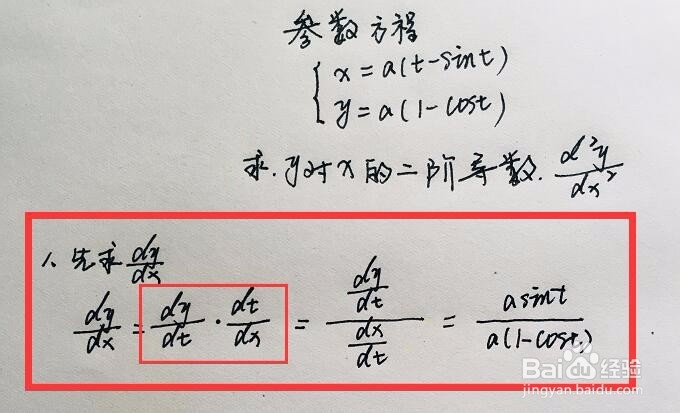 参数方程
{ x = a(t-sint)
y = a(1-cost)
求. y对x的二阶导数. d²y/dx²
1、先求 dy/dx
dy/dx = dy/dt · dt/dx = (dy/dt)/(dx/dt) = asint/a(1-cost)
Baidu经验
jingyan.baidu.com